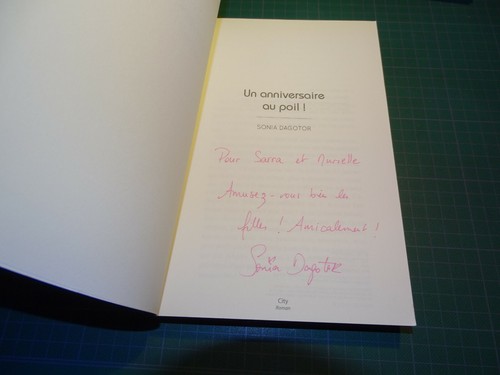 Un anniversaire
au poil !
SONIA DAGOTOR
Pour Saira et Murielle
Amusez-vous bien les
filles ! Amicalement !
Sonia Dagotor
City
Roman